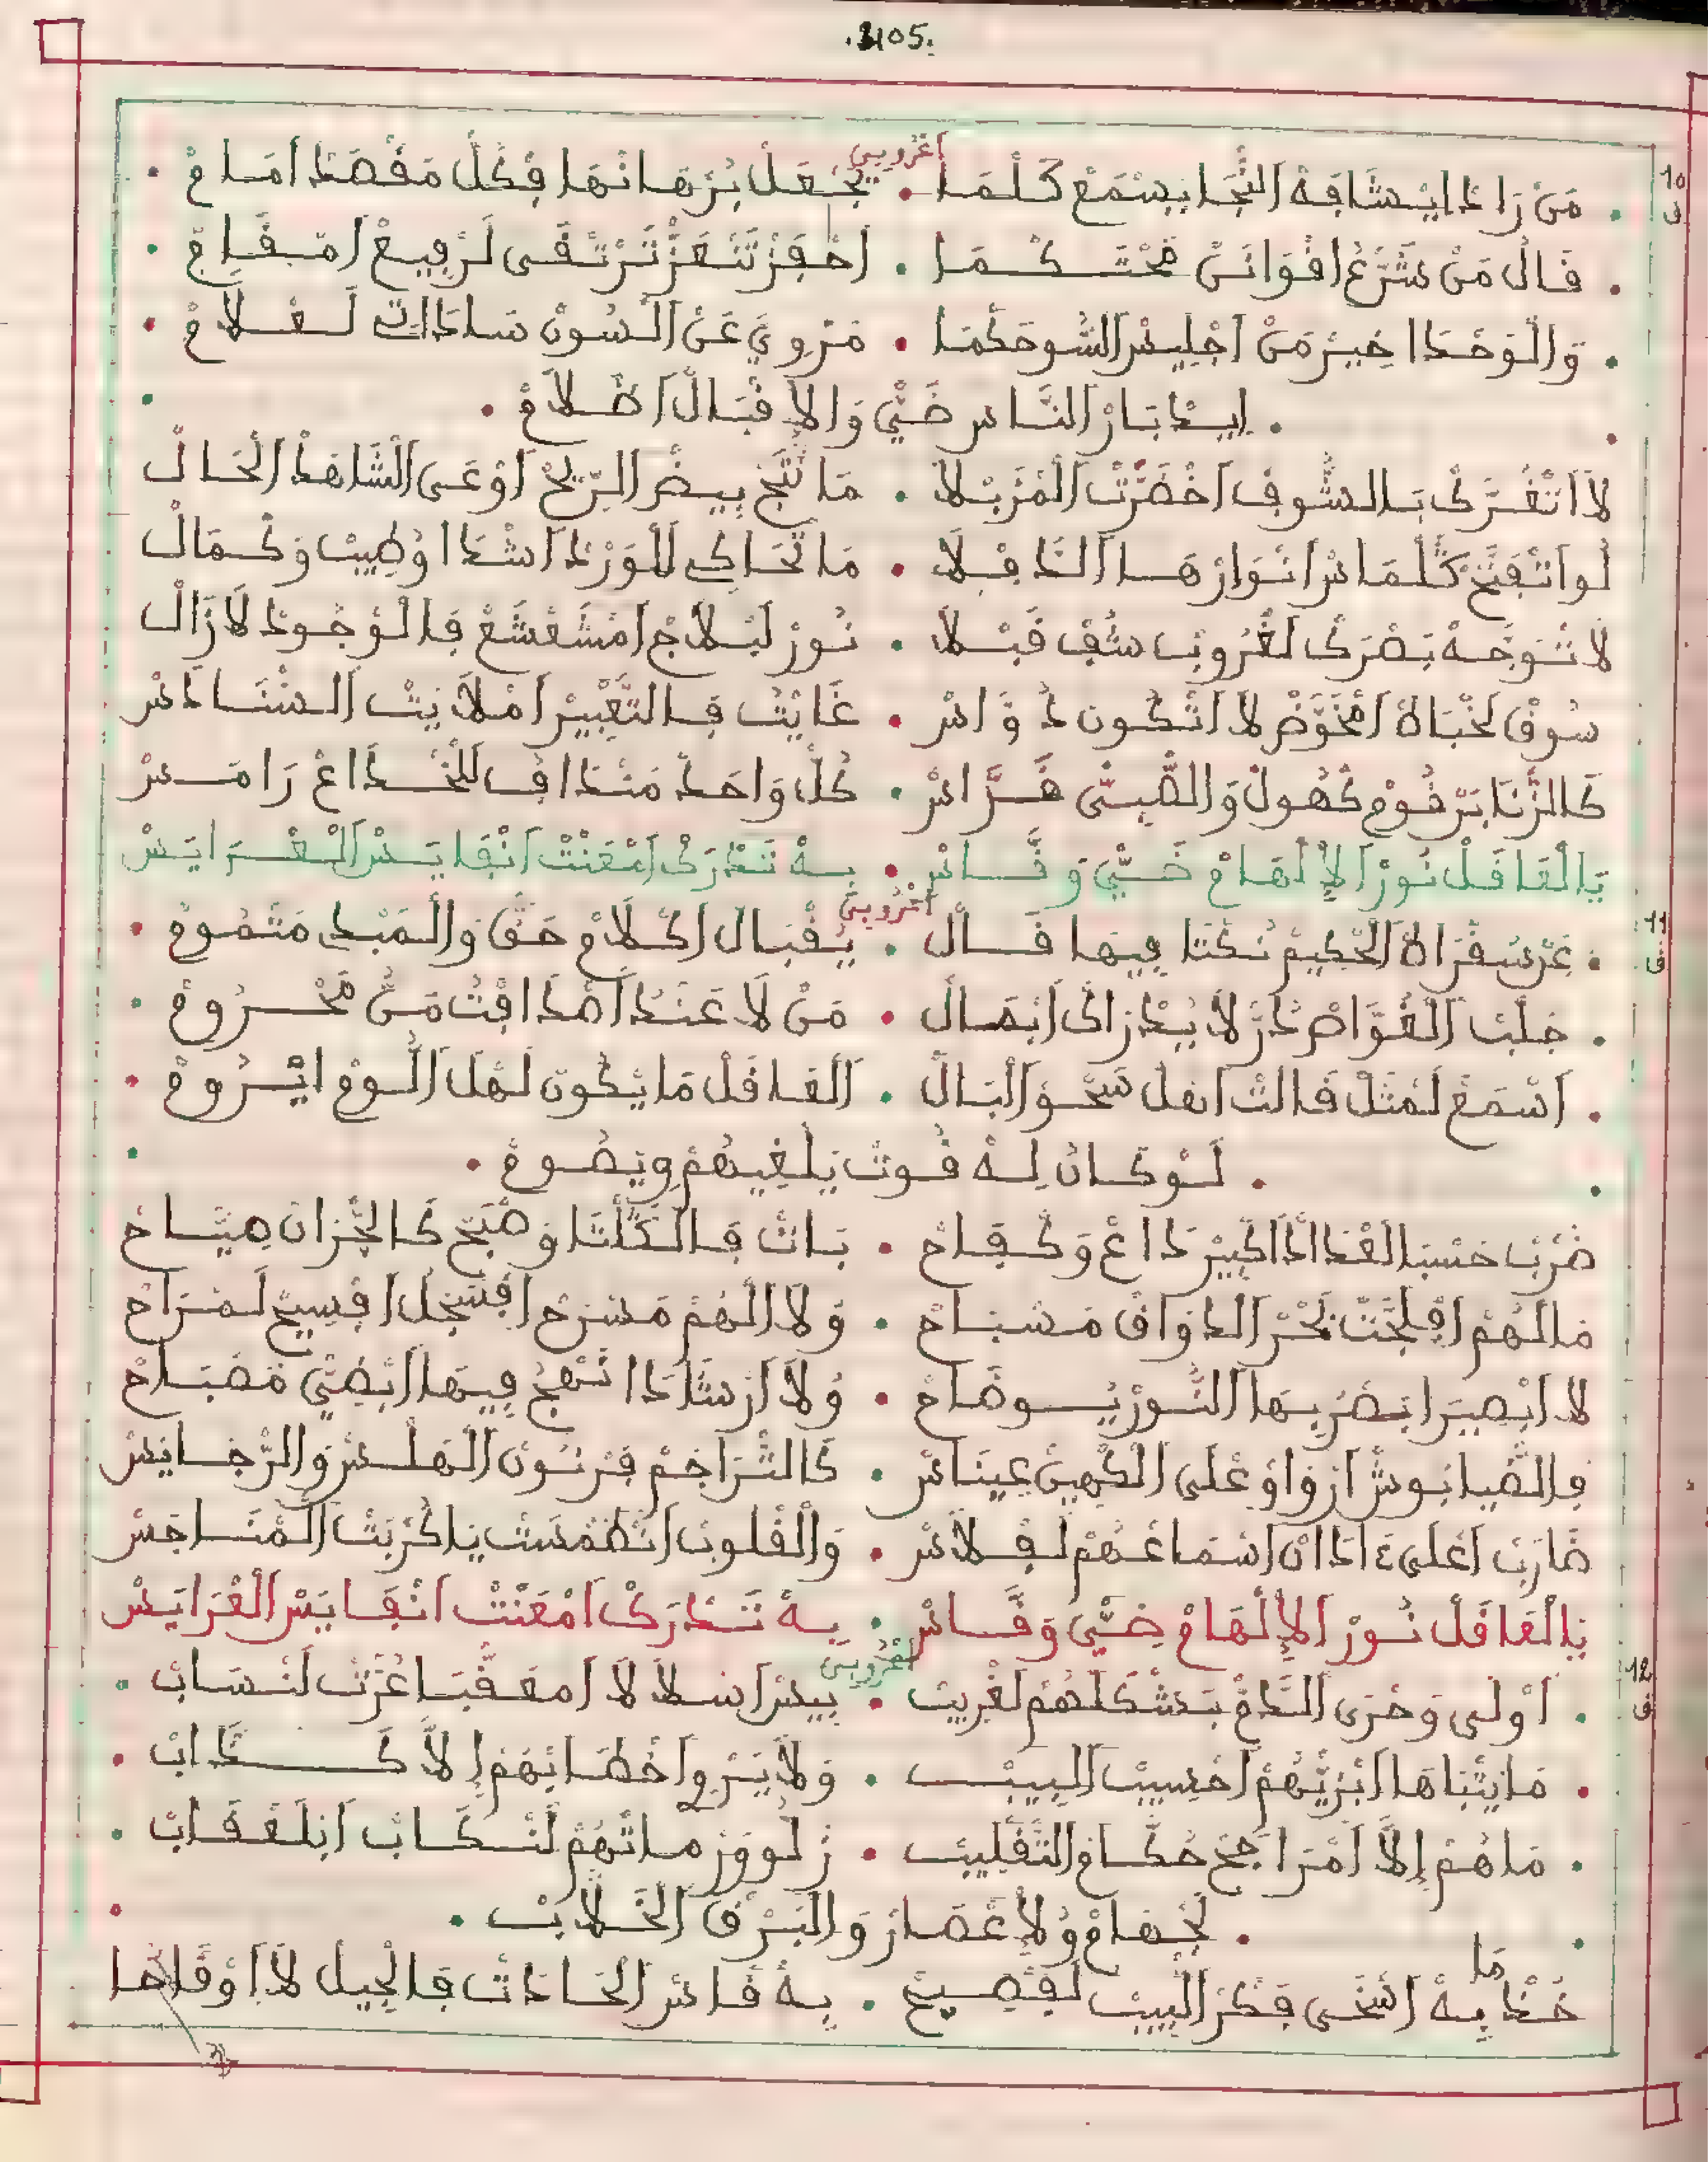 .105.
اَعْرُوبِي
10
ف
. مَنْ رَادْ اَيْشَافَهْ اَلنّْجَا يِسْمَعْ كَلْمَا . يَجْعَلْ بُرْهَانْهَا فِكُلّْ مَقْصَدْ اَمَامْ .
. قَالْ مَنْ شَرَّعْ اقْوَانَنْ مَحْتَكْمَا . اَحْفَزْ تَنْعَزّْ تَرْتْقَى لَرْفِيعْ اَمْقَامْ .
. وَالْوَحْدَا خِيرْ مَنْ اَجْلِيسْ السُّو حَكْمَا . مَرْوِي عَنْ اَلْسُونْ سَادَاتْ لَعْلَامْ .
. اِيدْبَارْ النَّاسْ ضَيّْ وَالاِقْبَالْ اَظْلَامْ .
لاَ اتْغُرَّكْ بَالشُّوفْ اَخْضَرّْتْ اَلْمَزْبْلَا . مَا تْنَجّْ بِيضْ اَلرِّيحْ اَوْعَى الشَّاهَدْ اَلْحَالْ
لُو اتْفَتَّحْ كُلّْمَا سْ اَنْوَارْهَا اَلذَّفْلَا . مَا تْحَاكِي لَلْوَرْدْ اَشْدَا اُوطِيبْ وَكْمَالْ
لَا تْوَجَّهْ بَصْرَكْ لَغْرُوبْ شُفْ قَبْلَا . نُورْ لَبْلَاجْ اَمْشَعْشَعْ فَالْوُجُودْ لَازَالْ
سُوقْ لَخْبَاهْ اَمْخَوَّضْ لَا اتْكُونْ دَوَّاسْ . غَايْتْ فَالتَّعْبِيرْ اَمْلَايْتْ اَلشّْنَادَسْ
كَالزَّنَابَرْ قُومْ كْهُولْ وَالصّْبِيّ هَرَّاسْ . كُلّْ وَاحَدْ مَنْدَافْ لَلْخْدَاعْ رَامَسْ
يَا لْغَافَلْ نُورْ اَلاِلْهَامْ ضَيّْ وَقَّاسْ . بِهْ تَدْرَكْ اَمْعَنْتْ اَنْفَايَسْ اَلْعْرَايَسْ
اَعْرُوبِي
11
ف
. عَنْ سُقْرَاهْ اَلْحَكِيمْ نُكْتَا فِيهَا قَالْ . يُقْبَالْ اَكْلَامْ حَقّْ وَالْمَبْدِي مَتْمُومْ .
. جَلْبْ اَلْغَوَّاصْ دُرّْ لَا يُدْرَاكْ اَبْمَالْ . مَنْ لَا عَنْدُ اَصْدَافْتُ مَنُّ مَحْرُومْ .
. اَسْمَعْ لَمْثَلْ قَالْتْ اَهْلْ سَحْوْ اَلْبَالْ . اَلْغَافَلْ مَا يْكُونْ لَهْلْ اَللُّومْ اَيْرُومْ .
. لَوْ كَانْ لِهْ قُوتْ يَلْغِيهُمْ وِيصُومْ .
ضَرْبْ حَسْبْ اَلْغْدَا اَلْدَا اَكْبِيرْ دَاعْ وَكْفَاحْ . بَاتْ فَالْكَلْتَا وَصْبَحْ كَالْجْرَانْ صِيَّاحْ
مَا لْهُمْ اَفْلَجّْتْ بْحَرْ اَلذّْوَاقْ مَسْبَاحْ . وَلَا الْهُمْ مَسْرَحْ اَفْسَجْلْ اَفْسِيحْ لَمْرَاحْ
لَا ابْصِيرَا بَصْرْ بِهَا اَلنُّورْ يُوضَاحْ . وُلَا اَرْشَادَا تْنْهَجْ فِيهَا اَبْضَيّْ مَصْبَاحْ
فِالضّْيَا بُوشْ اَزْوَاوْ عْلَى الْكْهِينْ عِينَاسْ . كَالتّْرَاجَمْ قَرْنُونْ اَلْهَلْسْ وَالرّْجَايَسْ
ضَارَبْ اَعْلَى ءَاذَانْ اَسْمَاعْهُمْ لَفْلَاسْ . وَالْقْلُوبْ اَنْطَمْسَتْ يَا كُرْبْتْ اَلْمْنَاجَسْ
يَا لْغَافَلْ نُورْ اَلاِلْهَامْ ضَيّْ وَقَّاسْ . بِهْ تَدْرَكْ اَمْعَنْتْ اَنْفَايَسْ اَلْعْرَايَسْ
اَعْرُوبِي
12
ف
. اَوْلَى وَحْرَى اَلذَّمّْ بَشْكَلْهُمْ لَغْرِيبْ . بِيسْ اَسْلَالَا اَمْعَقّْبَا عُرّْتْ لَنْسَابْ .
. مَا يَتْبَاهَا اَبْزِيّْهُمْ اَحْسِيبْ اَلْبِيبْ . وَلَا يَرْوِ اَخْصَايْهُمْ اِلاَّ كَدَّابْ .
. مَا هُمْ اِلاَّ اَمْرَاجَحْ حُكَّامْ التَّقْلِيبْ . زْلُو وَزْمَاتْهُمْ لَنْكَابْ اَبْلَعْقَابْ .
. لَجْهَامْ وُلَاعْصَارْ وَالْبَرْقْ اَلْخَلَّابْ .
مَا
خُظَا بِهْ اَسْخَى فَكْرْ اَلْبِيبْ لَفْصِيحْ . بِهْ قَاسْ اَلْحَادَتْ فَالْجِيلْ لَا اَوْقَاحَا